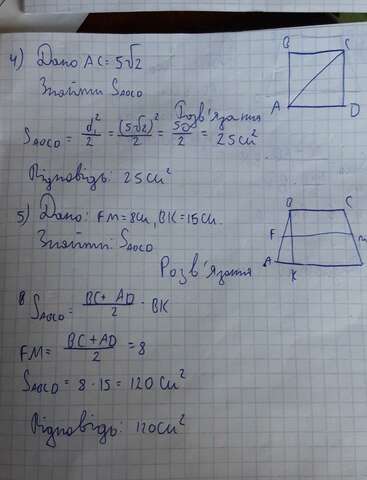 4) Дано AC = 5√2
Знайти S_ABCD
Розв'язання
S_ABCD = d²/2 = (5√2)²/2 = 50/2 = 25 см²
Відповідь: 25 см²
B C
A D
5) Дано: FM = 8см, BK = 15см.
Знайти: S_ABCD
Розв'язання
B C
F M
A K
8 S_ABCD = BC + AD/2 · BK
FM = BC + AD/2 = 8
S_ABCD = 8 · 15 = 120 см²
Відповідь: 120 см²